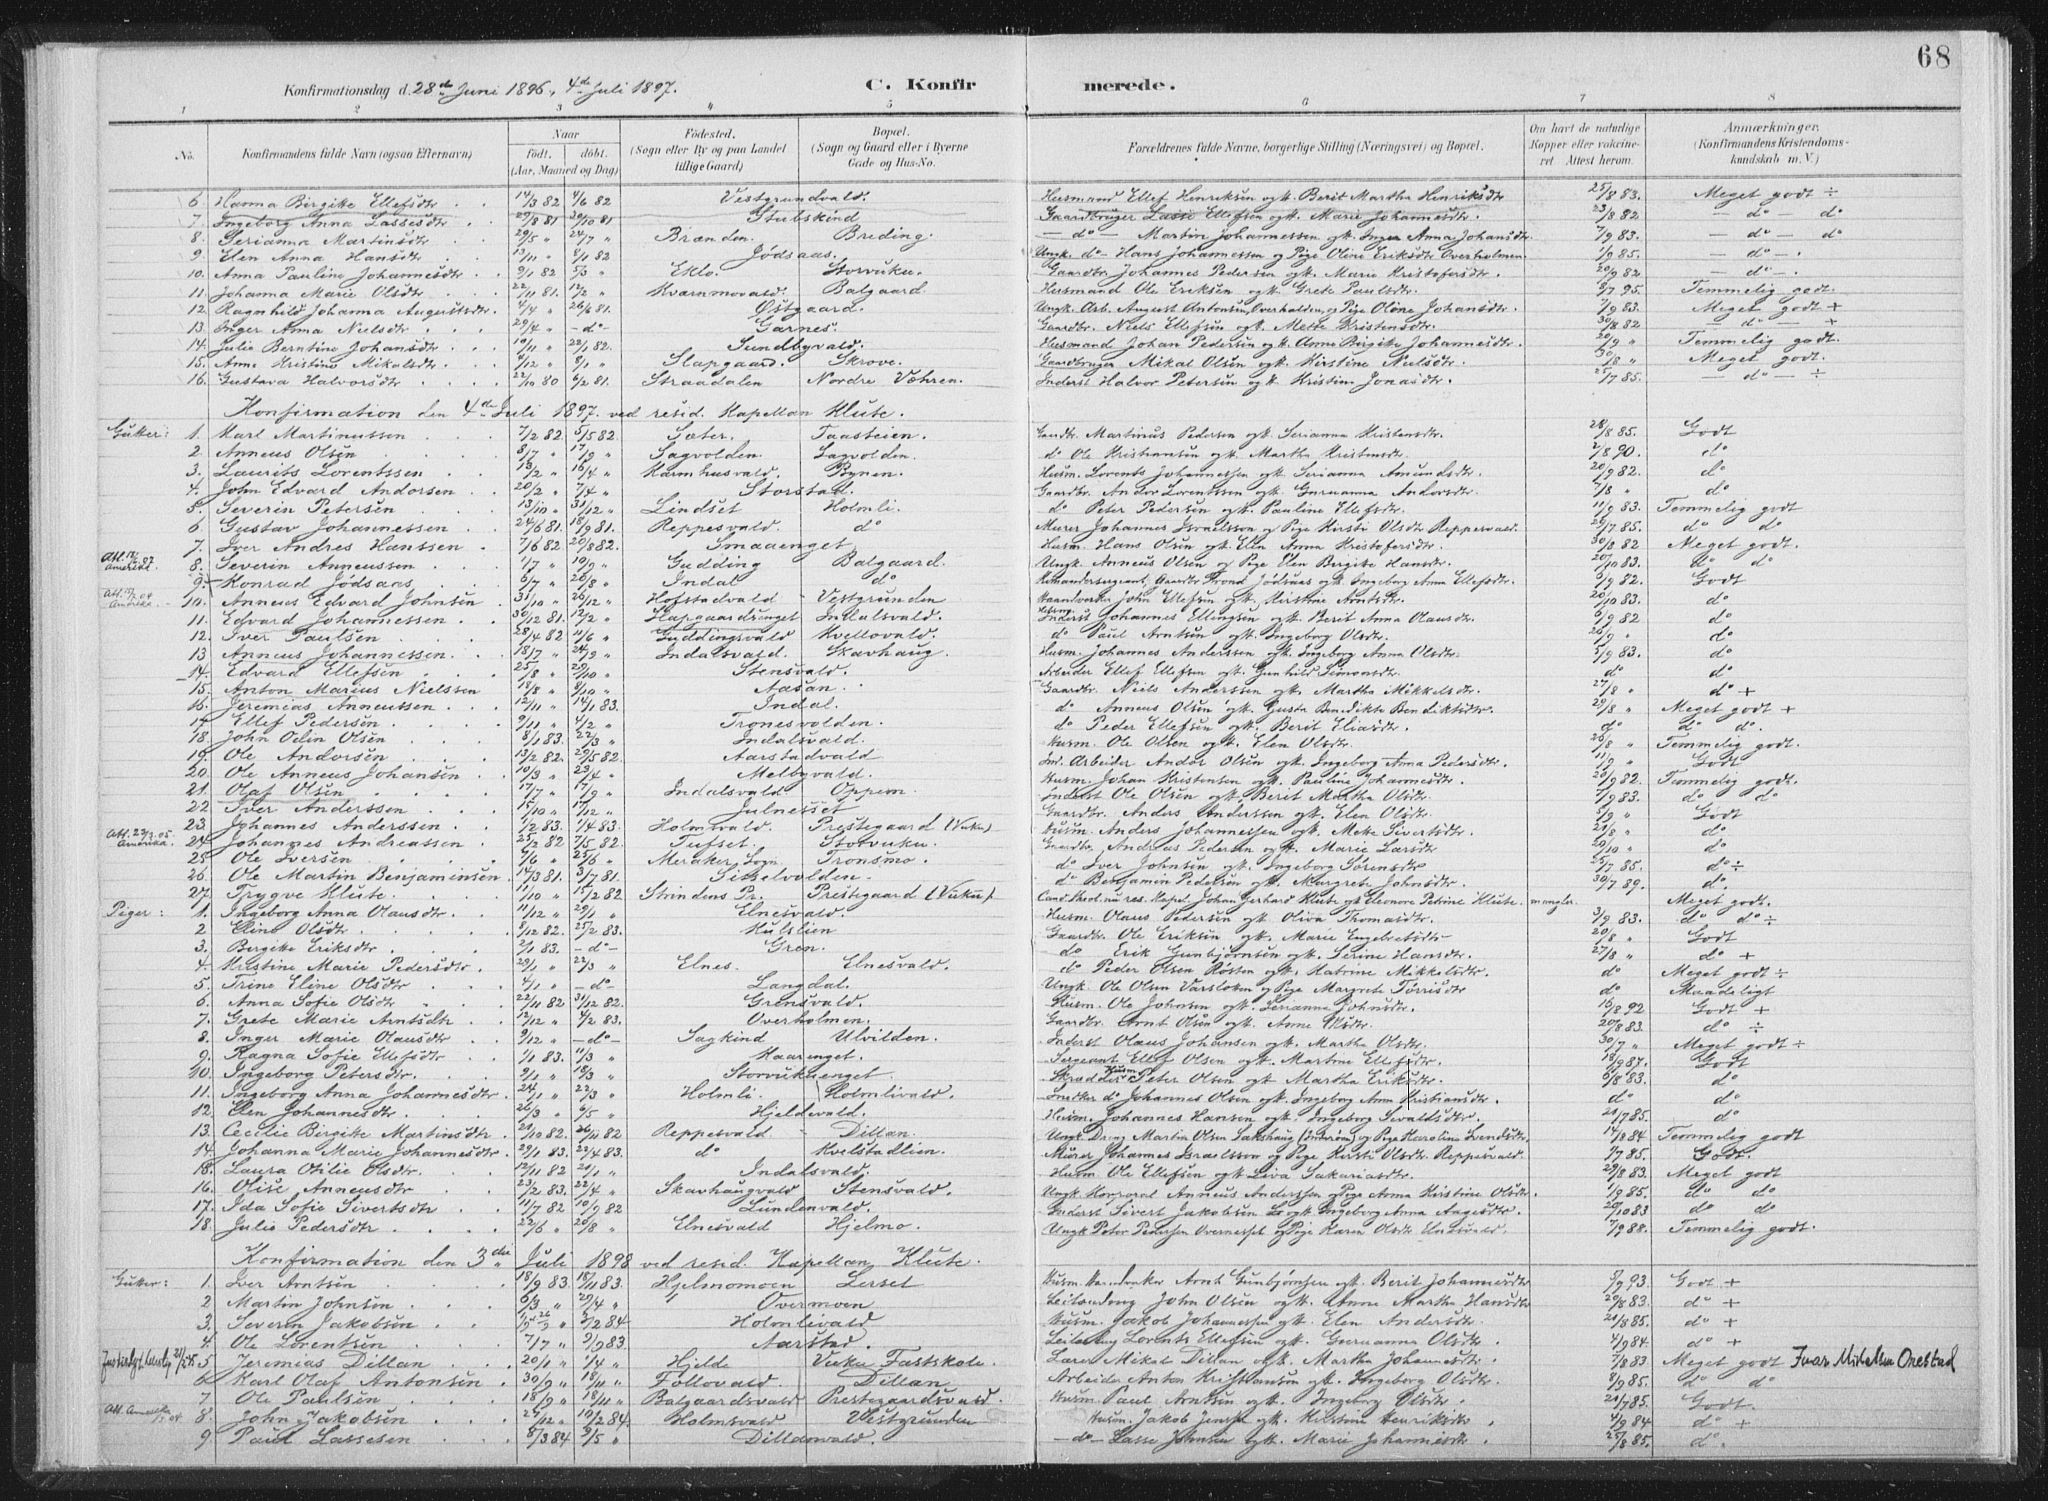 68
Konfirmationsdag d. 28de Juni 1896, 4de Juli 1897. C. Konfirmerede.
1 2 3 4 5 6 7 8
No. Konfirmandens fulde Navn (ogsaa Efternavn) Naar født, døbt. (Aar, Maaned og Dag) Fødested. (Sogn eller By og paa Landet tillige Gaard) Bopæl. (Sogn og Gaard eller i Byerne Gade og Hus-No. Forældrenes fulde Navne, borgerlige Stilling (Næringsvei) og Bopæl. Om havt de naturlige Kopper eller vaccineret Attest herom. Anmærkninger. (Konfirmandens Kristendomskundskab m. V.)
6 Hanna Birgitte Ellefsdtr 14/3 82 4/6 82 Vestgrundvald. Husmand Ellef Henriksen og k. Berit Martha Henriksdtr 25/8 83. Meget godt ÷
7. Ingeborg Anna Lassesdtr 29/8 81 30/10 81 Stubskind Gaardbruger Lasse Ellefsen og k. Marie Johannesdtr. 23/8 82 — do do
8. Serianna Martinsdtr 29/5 " 24/7 " Brænden. Breding. — do — Martin Johannessen og k. Inger Anna Johansdtr. 7/9 83. — do — do
9. Elen Anna Hansdtr 13/11 " 8/1 82 Jødsaas. Ungk. do Hans Johannessen og Pige Oline Eriksdtr Overholmen. 1/9 85. — do —.
10. Anna Pauline Johannesdtr 9/1 82 Eklo. Storvuku. Gaardbr. Johannes Pedersen og k. Marie Kristofersdtr. 20/9 82 — do —.
11. Johanna Marie Olsdtr 22/11 81. 12/2 " Kværnmovald. Balgaard Husmand Ole Eriksen og k. Grete Paulsdtr. 8/7 95. Temmelig godt.
12. Ragnhild Johanna Augustsdtr. 4/4 " 26/6 81. Østgaard. Ungk. Arb. August Antonsen, Overholden, og Pige Oline Johansdtr. 7/9 83. Meget godt +
13. Inger Anna Nielsdtr 29/4 " — do — Garnes. Gaardbr. Niels Ellefsen og k. Mette Kristensdtr. 30/8 82 — do — +
14. Julie Berntine Johansdtr 19/11 " 22/1 82. Sundbyvald. Husmand Johan Pedersen og k. Anne Birgitte Johannesdtr. 20/9 " Temmelig godt.
15. Anne Kristine Mikalsdtr 4/12 " 8/1 " Slapgaard. Skrove. Gaardbruger Mikal Olsen og k. Kirstine Nielsdtr. 30/8 " Meget godt.
16. Gustava Halvorsdtr 22/10 80 6/2 81. Straadalen Nordre Vohren. Inderst Halvor Petersen og k. Kristine Jonasdtr. 25/7 85. — do — ÷
Konfirmation den 4de Juli 1897. ved resid. Kapellan Klüte.
Gutter: 1. Karl Martinussen 7/2 82 5/5 82. Sæter. Taasteien. Gaardbr. Martinus Pedersen og k. Serianna Kristensdtr. 28/8 85. Godt
2 Anneus Olsen 8/7 " 17/9 " Sagvolden. Sagvolden. do Ole Kristiansen og k. Martha Kristensdtr. 2/8 90. do
3. Laurits Lorentssen 13/2 " 16/4 " Karmhusvald. Bynen. Husm. Lorents Johannessen og k. Serianna Amundsdtr. 20/9 82. do
4. John Edvard Andorsen 20/2 " 7/4 " Storstad. Gaardbr. Andor Lorentssen og k. Guruanna Andorsdtr. 7/8 " do
5. Severin Petersen 13/10 " 31/12 " Lindset Holmli. do Peter Pedersen og k. Pauline Ellefsdtr. 11/9 83. Temmelig godt
6 Gustav Johannessen 24/6 81. 18/9 81. Reppesvald. do Murer Johannes Israelsson og Pige Kirsti Olsdtr Reppesvald. 29/7 85. do do
7. Iver Andres Hanssen 7/6 82 20/8 82. Smaaenget Husm. Hans Olsen og k. Elen Anna Kristofersdtr. 30/8 82 Meget godt.
8. Severin Anneussen 1/7 " 10/9 " Gudding Balgaard. Ungk. Anneus Olsen og Pige Elen Birgitte Hansdtr. 20/10 83. do do
9. Konrad Jødsaas 6/7 " 20/8 " Indal do Kommandersergeant, Gaardbr Trond Jødsaas og k. Ingeborg Anna Ellefsdtr. 9/9 82. Godt
10. Anneus Edvard Johnsen 31/10 " 26/12 " Hofstadvald Vestgrunden Haandverker John Ellefsen og k. Kirstine Arntsdtr. 20/10 83. do
11. Edvard Johannessen 30/12 81. 12/2 " Slapgaardsenget Indalsvald. Inderst Johannes Ellingsen og k. Berit Anna Olausdtr. 6/9 82 do
12. Iver Paulsen 28/4 82 11/6 " Guddingsvald Kvellovald. do Paul Arntsen og k. Ingeborg Olsdtr. 26/9 " do
13 Anneus Johannessen 18/7 " 24/9 " Indalsvald. Skavhaug. Husm. Johannes Anderssen og k. Ingeborg Anna Olsdtr. 5/9 83. do
14. Edvard Ellefsen 25/8 " 29/10 " Stensvald. Arbeider Ellef Ellefsen og k. Gunhild Simonsdtr. do do
15. Anton Marius Nielssen 18/8 " 8/10 " Aasan. Gaardbr. Niels Anderssen og k. Martha Mikkelsdtr. 27/8 " do +
16. Jeremias Anneussen 12/11 " 14/1 83. Indal. do Anneus Olsen og k. Gusta Benedikte Bendiktsdtr. 29/8 " Meget godt +
17. Ellef Pedersen 9/11 " 4/2 " Tronesvolden. do Peder Ellefsen og k. Berit Eliasdtr. do do do.
18. John Odin Olsen 8/1 83. 22/3 " Indalsvald. Husm. Ole Olsen og k. Elen Olsdtr. 26/8 " Temmelig godt.
19. Ole Andorsen 13/2 82. 29/5 82 Aarstadvald Arbeider Andor Olsen og k. Ingeborg Anna Pedersdtr. 11/9 " Godt
20. Ole Anneus Johansen 10/3 " 23/4 " Melbyvald. Husm. Johan Kristensen og k. Pauline Johannesdtr. 20/9 82. Temmelig godt.
21. Olaf Olsen 17/7 " 17/9 " Indalsvald Oppem. Inderst Ole Olsen og k. Berit Martha Olsdtr. 7/9 83. do do
22 Iver Anderssen 15/10 " 17/12 " Julneset Gaardbr. Anders Anderssen og k. Elen Olsdtr. 5/9 " Godt
23. Johannes Anderssen 1/2 83. 1/4 83. Holmsvald. Prestegaard (Vuku) Husm. Anders Johannessen og k. Mette Sivertsdtr. 21/8 " do
Att. 22/3. 05. Amerika. 24. Johannes Andreassen 25/2 82 7/5 82. Tufset. Storvuku. Gaardbr. Andreas Pedersen og k. Marie Larsdtr 29/10 " do
25. Ole Iversen 9/6 " 25/6 " Meraker Sogn. Tronsmo. do Iver Johnsen og k. Ingeborg Sørensdtr 25/7 85. do ÷
26. Ole Martin Benjaminsen 14/3 81. 3/7 81. Sisselvolden. do Benjamin Pedersen og k. Margrete Johnsdtr. 30/7 89. do.
27. Trygve Klüte 11/10 " 15/2 82 Strindens Pr. Prestegaard (Vuku). Cand. theol. nu res. Kapel. Johan Gerhard Klüte og k. Eleonore Petrine Klüte. mangler. Meget godt.
Piger: 1. Ingeborg Anna Olausdtr. 11/12 " 29/1 " Elnesvald. Husm. Olaus Pedersen og k. Oliva Thomasdtr. 3/9 83. do do ÷
2 Eline Olsdtr. 9/12 82. 25/2 83. Kulslien Gaardbr. Ole Eriksen og k. Marie Engebretsdtr 20/8 " Godt
3. Birgitte Eriksdtr. 2/1 83. — do — Gren. do Erik Gunbjørnsen og k. Serine Hansdtr. 27/8 " do +
4. Kristine Marie Pedersdtr. 29/1 " 22/3 " Elnes. Elnesvald. do Peder Olsen Røsten og k. Katrine Mikkelsdtr. do Meget godt ÷
5. Trine Eline Olsdtr 4/1 " — do — Langdal. Ungk. Ole Olsen Varsloken og Pige Margrete Torrisdtr do Maadeligt
6. Anna Sofie Olsdtr 22/11 82 31/12 82. Grensvald. Husm. Ole Johnsen og k. Serianna Johnsdtr. 16/8 92 Godt +
7. Grete Marie Arntsdtr. 12/12 " 4/2 83. Overholmen. Gaardbr. Arnt Olsen og k. Anne Olsdtr. 20/8 83 do ÷
8. Inger Marie Olausdtr. 9/12 " — do — Sagkind Ulvilden. Inderst Olaus Johansen og k. Martha Olsdtr. 30/7 " Meget godt ÷
9. Ragna Sofie Ellefsdtr 1/1 83. 11/3 " Kaarenget. Sergeant Ellef Olsen og k. Martine Ellefsdtr. 18/9 87. Godt
10. Ingeborg Petersdtr. 9/1 " 18/3 " Storvukuenget. Skrædder Husm. Peter Olsen og k. Martha Eriksdtr. 6/8 83 do
11. Ingeborg Anna Johannesdtr. 24/1 " 22/3 " Holmli. Holmlivald. Snedker do Johannes Olsen og k. Ingeborg Anna Kristiansdtr. do do
12. Elen Johannesdtr. 26/3 " 6/5 " Hjeldevald. Husm. Johannes Hansen og k. Ingeborg Sevaldsdtr. 21/7 85. do
13. Cecilie Birgitte Martinsdtr. 21/10 82. 26/11 82 Reppesvald. Dillan. Ungk. Dreng Martin Olsen Sakshaug (Inderøen) og Pige Karoline Svendsdtr. 14/8 84 Temmelig godt
14. Johanna Marie Johannesdtr. 29/1 83. 22/4 83. do Kvelstadlien. Murer Johannes Israelsson og Pige Kirsti Olsdtr. Reppesvald. 1/7 85. Godt.
15. Laura Otilie Olsdtr. 12/11 82 21/1 " Indalsvald. Husm. Ole Ellefsen og k. Liva Sakariasdtr. 29/8 83. Meget godt
16. Olise Anneusdtr 23/2 83. 22/4 " Skavhaugvald Stensvald. Ungk. Korporal Anneus Anderssen og Pige Anna Kirstine Olsdtr. 1/9 85. do do
17. Ida Sofie Sivertsdtr. 11/7 82 10/9 82 Lundenvald. Inderst Sivert Jakobsen og k. Ingeborg Anna Aagesdtr. 20/10 83 do do
18. Julie Pedersdtr. 22/6 " 20/8 " Elnesvald Hjelmo. Ungk Peter Pedersen Overneset og Pige Karen Olsdtr Elnesvald. 7/9 88. Temmelig godt.
Konfirmation den 3die Juli 1898 ved resid. Kapellan Klüte.
Gutter: 1. Iver Arntsen 18/9 83. 18/11 83. Hjelmomoen Lerset Husm. Arnt Gunbjørnsen og k. Berit Johannesdtr 5/9 93. Godt +
2 Martin Johnsen 6/3 " 29/4 " Overmoen Leilænding John Olsen og k. Anne Martha Hansdtr 29/8 83. do +
3. Severin Jakobsen 3/2 84 Holmlivald Husm. Jakob Johannessen og k. Elen Andersdtr. 21/8 85. do +
4. Ole Lorentsen 7/7 " 9/9 83. Aarstad. Leilænding Lorents Ellefsen og k. Guruanna Olsdtr. 4/9 84. do +
5. Jeremias Dillan 20/1 " 1/4 " Hjelde Vuku Fastskole. Lærer Mikal Dillan og k. Martha Johannesdtr. 7/8 83 Meget godt
6 Karl Olaf Antonsen 30/9 " 18/11 " Follovald. Dillan. Arbeider Anton Kristiansen og k. Ingeborg Olsdtr. 8/9 85. do do
7 Ole Paulsen 18/9 " 18/11 " Balgaardsvald Prestegaardsvald. Husm. Paul Arntsen og k. Ingeborg Olsdtr. 21/7 85. Godt.
8. John Jakobsen 27/12 " 10/2 84. Holmsvald Vestgrunden Husm. Jakob Jensen og k. Kirstine Henriksdtr. 4/9 84 do +
9 Paul Lassesen 8/3 84 3/5 " Dillanvald. — do — Lasse Johnsen og k. Marie Johannesdtr. 25/8 85. do.